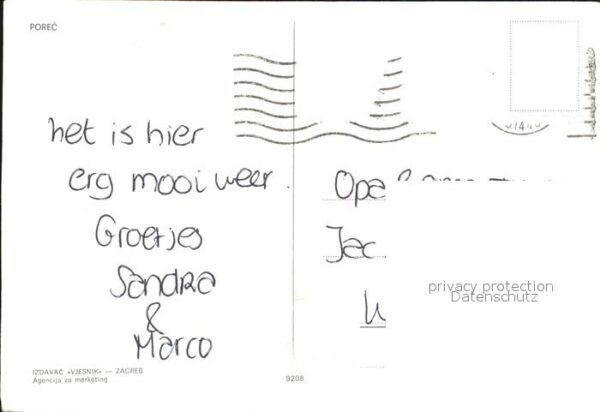 POREČ
het is hier
erg mooi weer.
Groetjes
Sandra
&
Marco
Opa
Jac
privacy protection
Datenschutz
IZDAVAČ »VJESNIK« — ZAGREB
Agencija za marketing
9208